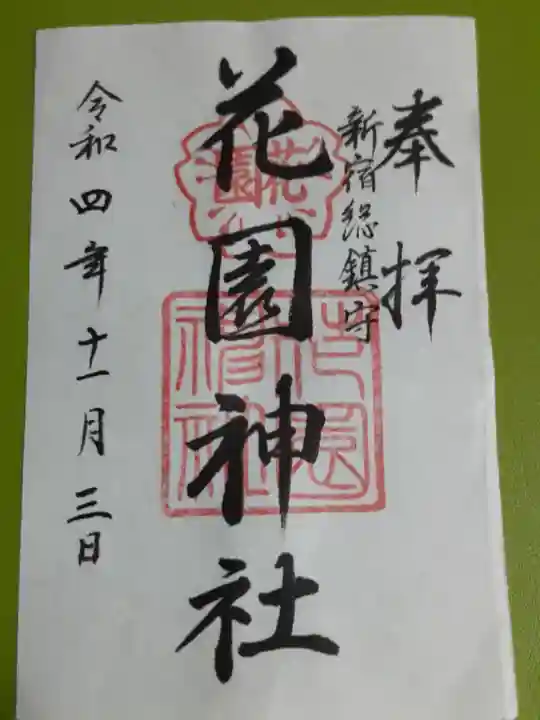 奉拝
新宿総鎮守
花園神社
花園
花園神社
令和四年十一月三日